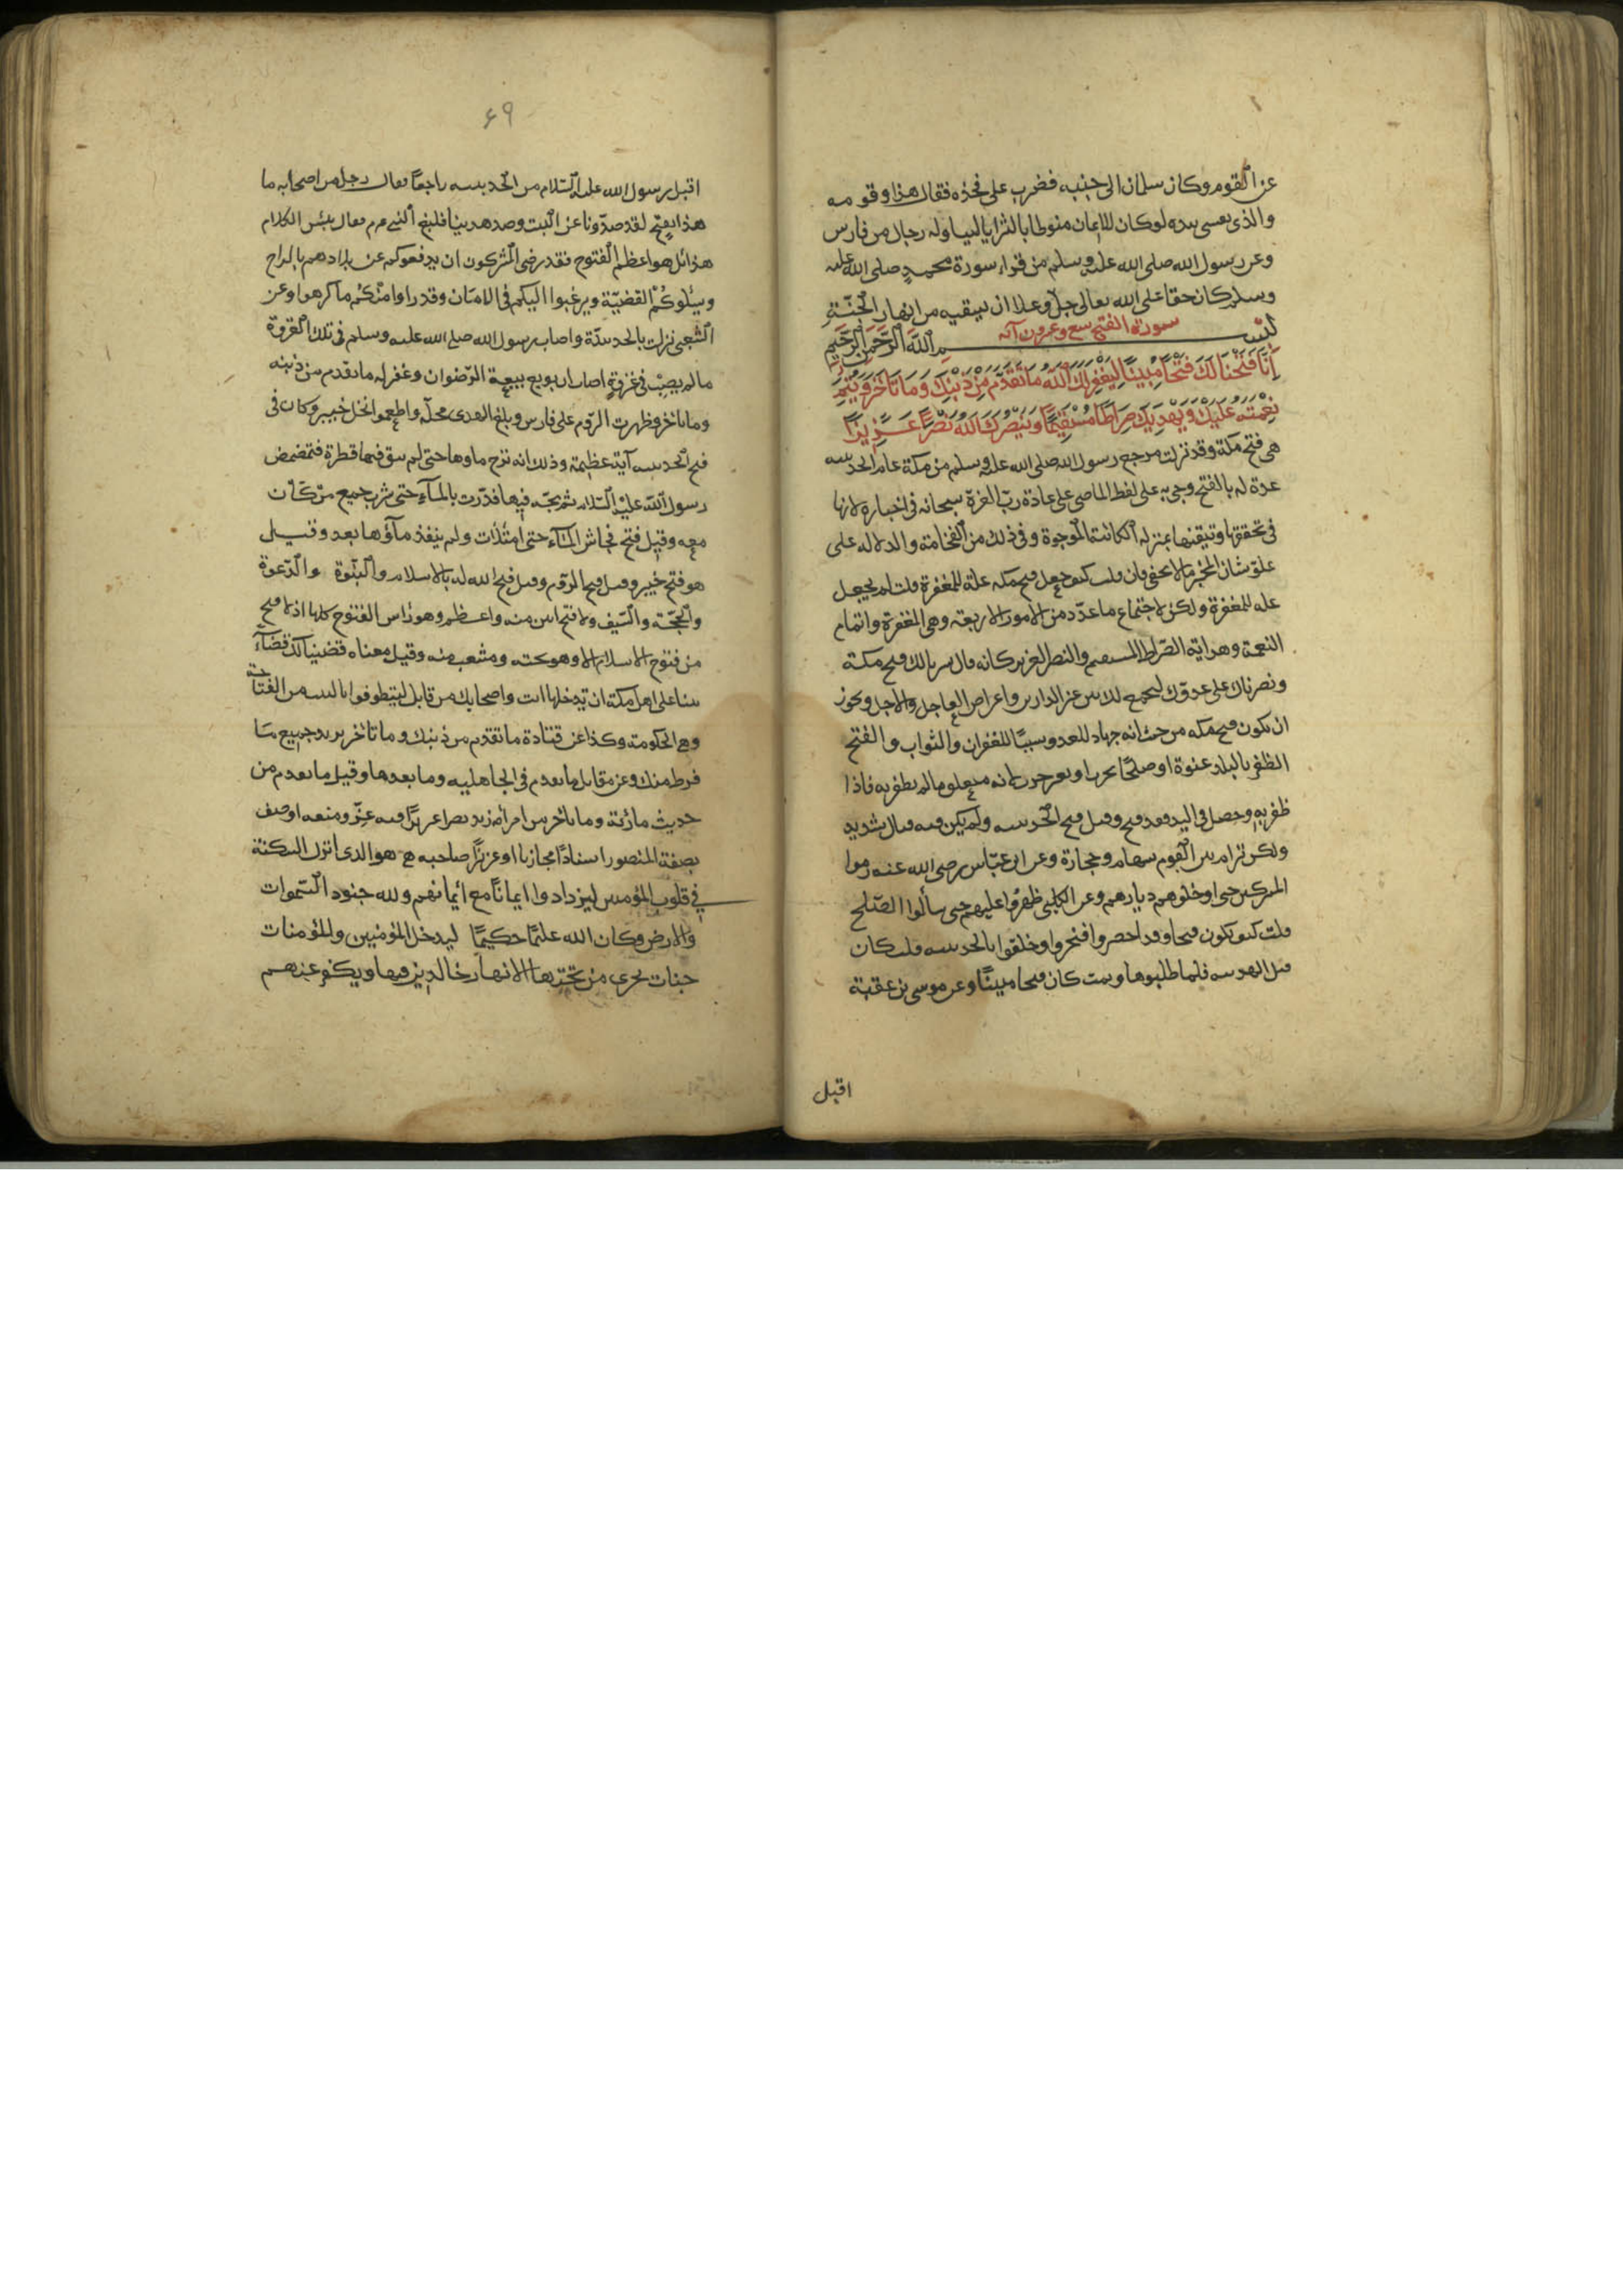 عن القوم وكان سلمان الى جنبه فضرب على فخذه فقال هذا وقومه
والذى نفسى بيده لوكان الايمان منوطا بالثريا لتناوله رجال من فارس
وعن رسول الله صلى الله عليه وسلم من قراء سورة محمد صلى الله عليه
وسلم كان حقا على الله تعالى جل وعلا ان يسقيه من انهار الجنة
سورة الفتح تسع وعشرون آية
بسم الله الرحمن الرحيم
إنا فتحنا لك فتحا مبينا ليغفر لك الله ما تقدم من ذنبك وما تأخر ويتم
نعمته عليك ويهديك صراطا مستقيما وينصرك الله نصرا عزيزا
هى فتح مكة وقد نزلت مرجع رسول الله صلى الله عليه وسلم من مكة عام الحديبيه
عدة له بالفتح وجئ به على لفظ الماضى على عادة رب العزة سبحانه فى اخباره لانها
فى تحققها وتيقنها بمنزله الكائنة الموجودة وفى ذلك من الفخامة والدلاله على
علو شان المخبر ما لا يخفى فان قلت كيف جعل فتح مكه علة للمغفرة قلت لم يجعل
عله للمغفرة ولكن لاجتماع ما عدد من الامور الاربعة وهى المغفرة واتمام
النعمة وهداية الصراط المستقيم والنصر العزيز كانه قال يسرنا لك فتح مكة
ونصرناك على عدوك لنجمع لك بين عز الدارين واغراض العاجل والاجل ويجوز
ان يكون فتح مكه من حيث انه جهاد للعدو سببا للغفران والثواب والفتح
الظفر بالبلد عنوة او صلحا بحرب او بغير حرب لانه منغلق ما لم يظفر به فاذا
ظفر به وحصل فى اليد فقد فتح وقيل فتح الحديبيه ولم يكن فيه قتال شديد
ولكن ترام بين القوم بسهام وحجارة وعن ابن عباس رضى الله عنه رموا
المشركين حتى ادخلوهم ديارهم وعن الكلبى ظهروا عليهم حتى سألوا الصلح
قلت كيف يكون فتحا وقد احصروا فنحروا وحلقوا بالحديبيه قلت كان
قبل الهدنه فلما طلبوها وتمت كان فتحا مبينا وعن موسى بن عقبة
اقبل
٦٩
اقبل رسول الله عليه السلام من الحديبيه راجعا فقال رجل من اصحابه ما
هذا بفتح لقد صدونا عن البيت وصد هدينا فبلغ النبى عم فقال بئس الكلام
هذا بل هو اعظم الفتوح فقد رضى المشركون ان يدفعوكم عن بلادهم بالراح
ويسئلوكم القضية ويرغبوا اليكم فى الامان وقد راوا منكم ما كرهوا وعن
الشعبى نزلت بالحديبية واصاب رسول الله صلى الله عليه وسلم فى تلك الغزوة
ما لم يصب فى غزوة اصاب ان بويع بيعة الرضوان وغفر له ما تقدم من ذنبه
وما تاخر وظهرت الروم على فارس وبلغ الهدى محله واطعموا نخل خيبر وكان فى
فتح الحديبيه آية عظيمة وذلك انه نزح ماوها حتى لم يبق فيها قطرة فتمضمض
رسول الله عليه السلام ثم مجه فيها فدرت بالماء حتى شرب جميع من كان
معه وقيل فتح فجاش الماء حتى امتلات ولم ينفذ ماؤها بعد وقيل
هو فتح خيبر وقيل فتح الروم وقيل فتح الله له بالاسلام والنبوة والدعوة
والحجة والسيف ولا فتح ابين منه واعظم وهو راس الفتوح كلها اذ لا فتح
من فتوح الاسلام الا وهو تحته ومتشعب منه وقيل معناه قضينا لك قضاء
بينا على اهل مكة ان تدخلها انت واصحابك من قابل ليتطوفوا بالبيت من الفتاحة
وهى الحكومة وكذا عن قتادة ما تقدم من ذنبك وما تاخر يريد جميع ما
فرط منك وعن مقاتل ما تقدم فى الجاهليه وما بعدها وقيل ما تقدم من
حديث مارية وما تاخر من امرأة زيد نصرا عزيزا فيه عز ومنعه او وصف
بصفة المنصور اسنادا مجازيا او عزيزا صاحبه هو الذى انزل السكنة
فى قلوب المؤمنين ليزدادوا ايمانا مع ايمانهم ولله جنود السموات
والارض وكان الله عليما حكيما ليدخل المؤمنين والمؤمنات
جنات تجرى من تحتها الانهار خالدين فيها ويكفر عنهم